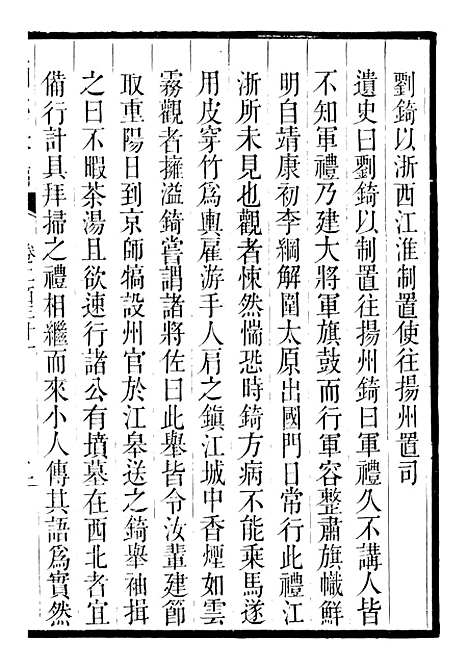 劉錡以浙西江淮制置使往揚州置司
遺史曰劉錡以制置往揚州錡曰軍禮久不講人皆
不知軍禮乃建大將軍旗鼓而行軍容整肅旗幟鮮
明白靖康初李綱解圍太原出國門日常行此禮江
浙所未見也觀者悚然惴恐時錡方病不能乗馬遂
用皮穿竹爲輿雇游手人肩之鎮江城中香煙如雲
霧觀者擁溢錡嘗謂諸將佐曰此舉皆令汝輩建節
取重陽日到京師犒設州官於江皋送之錡舉袖揖
之曰不暇茶湯且欲速行諸公有墳墓在西北者宜
備行計具拜掃之禮相繼而來小人傳其語爲實然